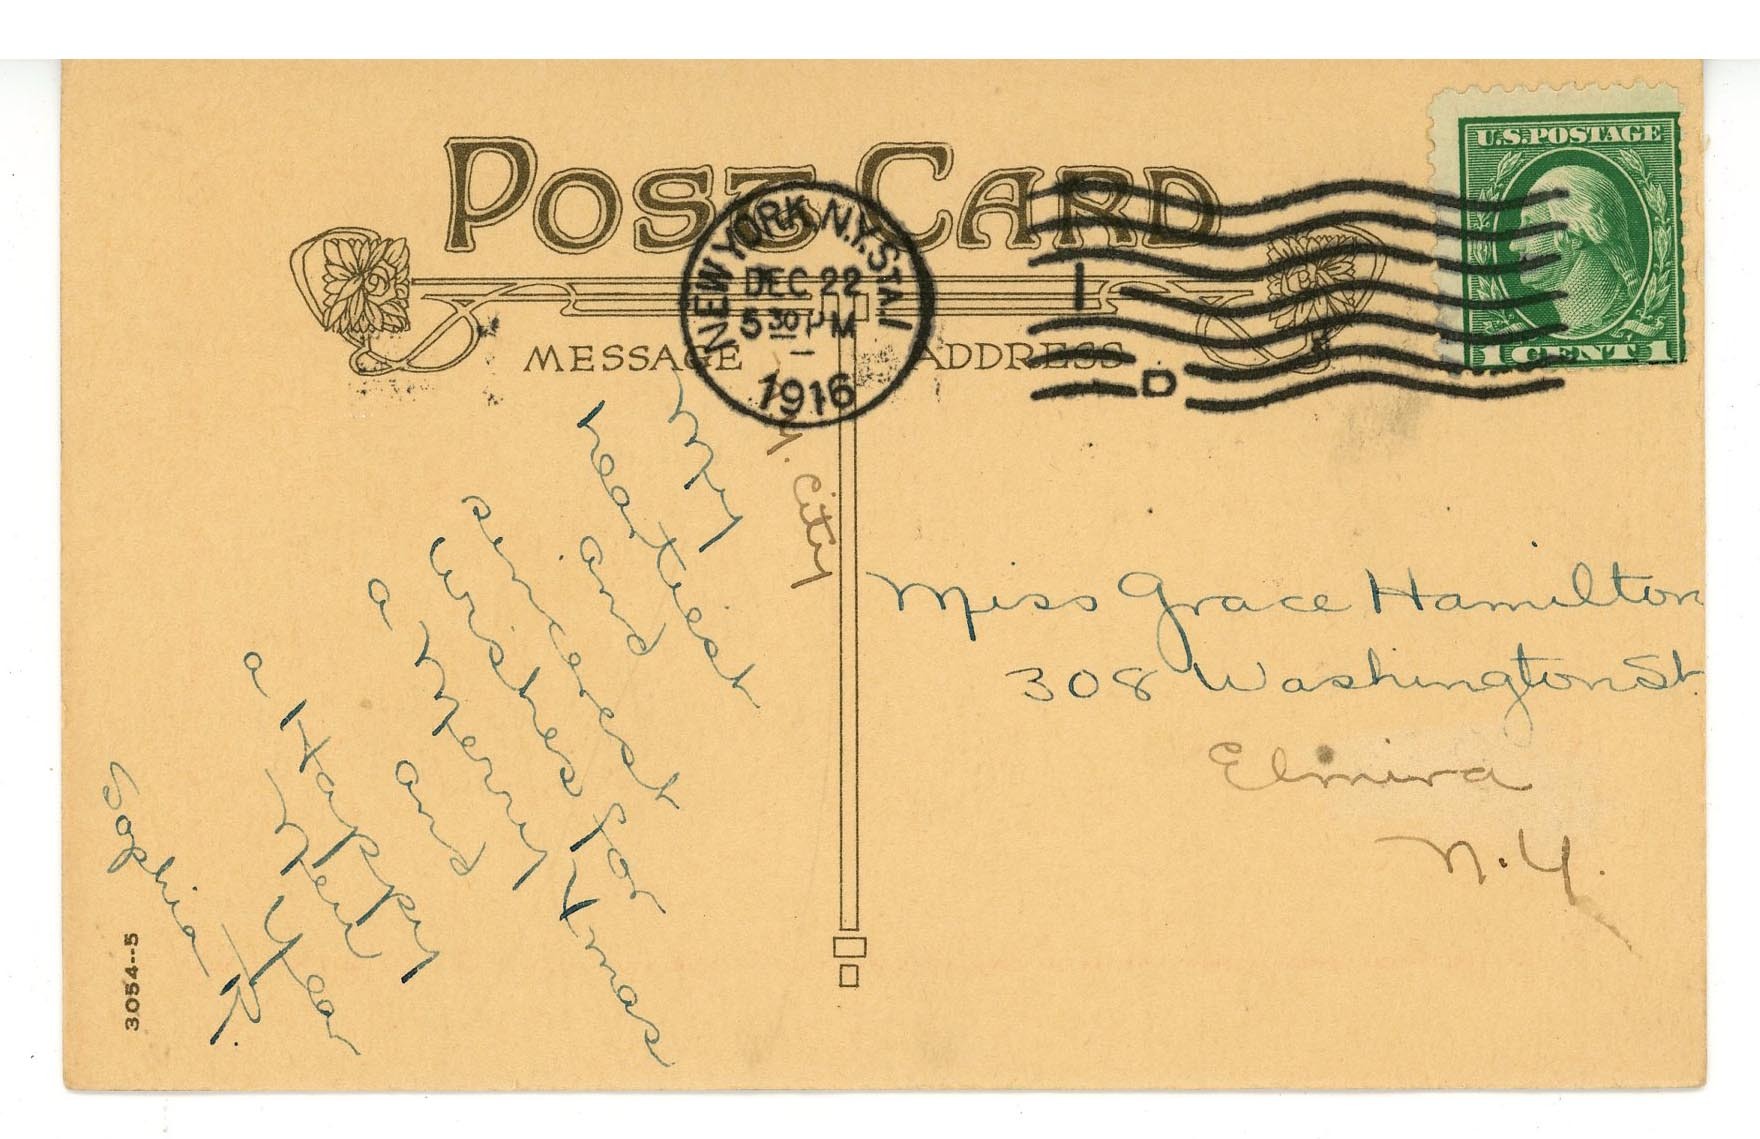 POST CARD
U.S. POSTAGE
1 CENT 1
NEW YORK, N.Y. STA. I
DEC 22
5 30 PM
1916
I
D
MESSAGE
ADDRESS
Y. City
My
heartiest
and
sincerest
wishes for
a Merry Xmas
and
a Happy
New Year
Sophia R.
Miss Grace Hamilton
308 Washington St.
Elmira
N.Y.
3054--5